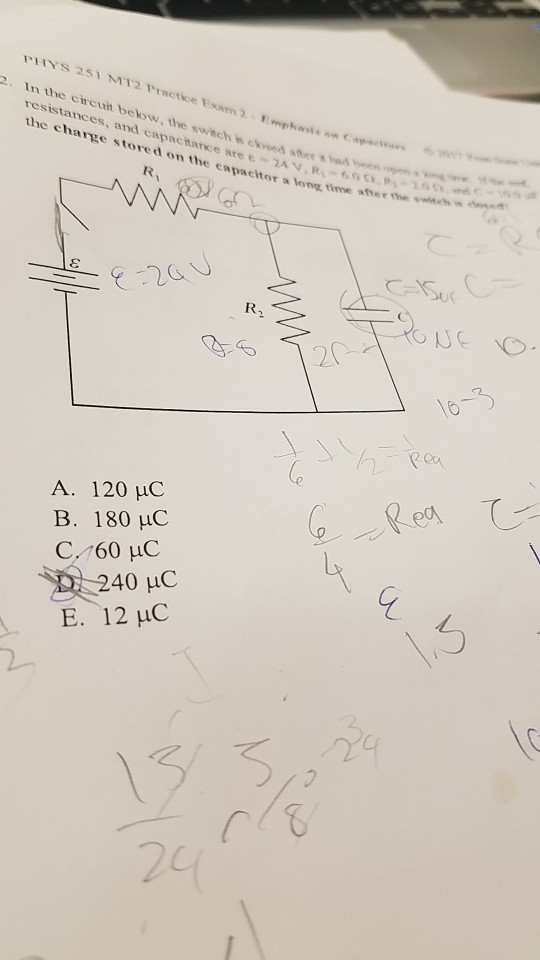 PHYS 251 MT2 Practice Exam 2 - Emphasis on Capacitors
2. In the circuit below, the switch is closed after it had been open a long time. If the emf,
resistances, and capacitance are ε = 24 V, R₁ = 6.0 Ω, R₂ = 2.0 Ω, and C = 10.0 μF
the charge stored on the capacitor a long time after the switch is closed?
R₁
6Ω
τ =
ε
ε=24V
C=15μF C=
R₂
C
10
10.
R=8
2Ω
10-3
1/6 + 1/2 = 1/Req
A. 120 μC
B. 180 μC
C. 60 μC
D. 240 μC
E. 12 μC
6/4 = Req
τ=
ε
1.5
13 3
24
24
8